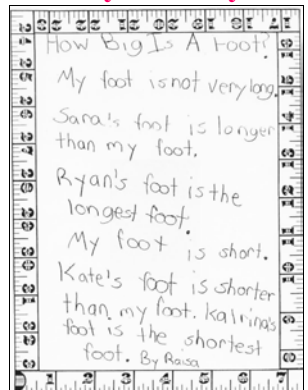 How Big Is A Foot?
My foot is not very long.
Sara's foot is longer
than my foot.
Ryan's foot is the
longest foot.
My foot is short.
Kate's foot is shorter
than my foot. Katrina's
foot is the shortest
foot. By Raisa